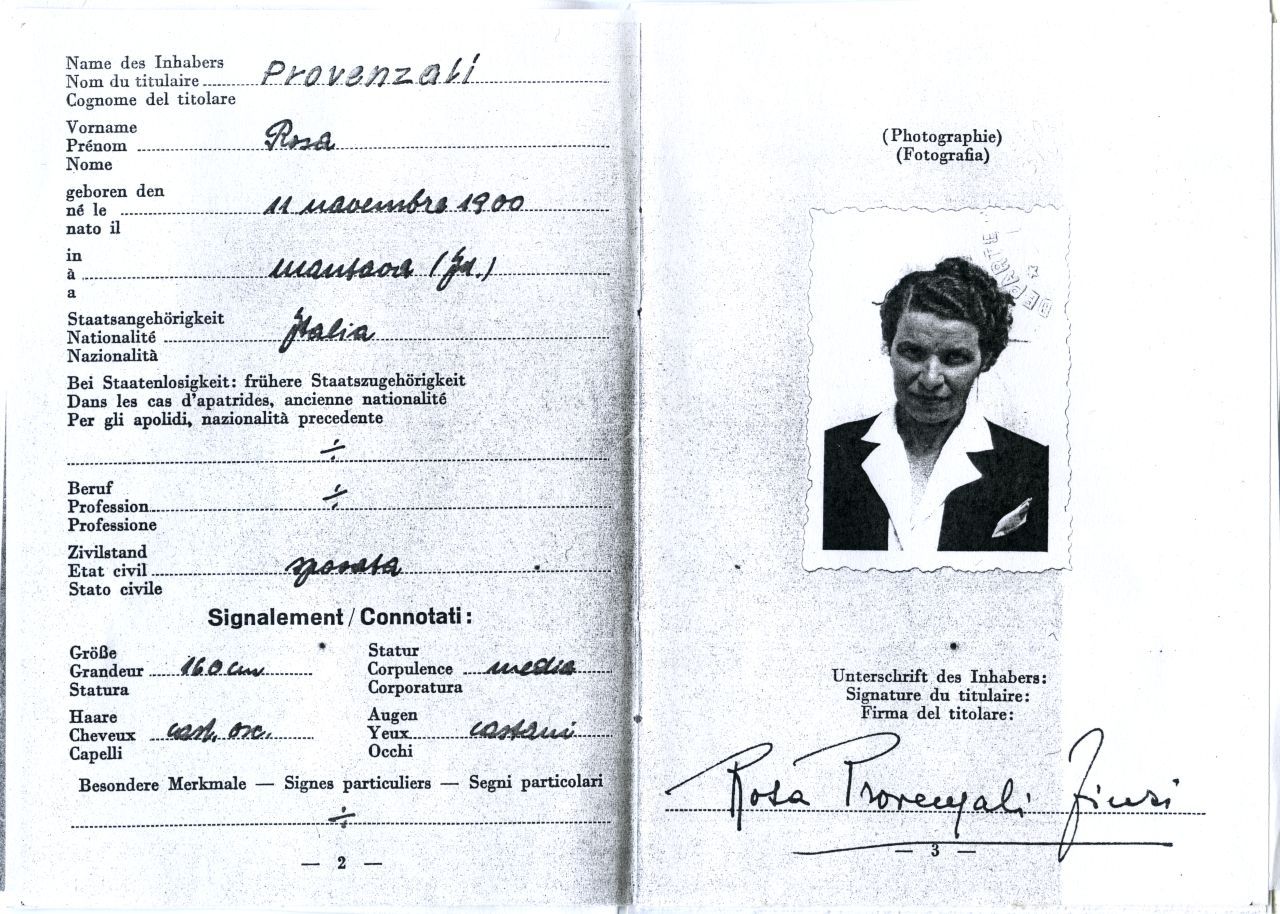 Name des Inhabers
Nom du titulaire Provenzali
Cognome del titolare
Vorname
Prénom Rosa
Nome
geboren den
né le 11 novembre 1900
nato il
in
à mantova (It.)
a
Staatsangehörigkeit
Nationalité Italia
Nazionalità
Bei Staatenlosigkeit: frühere Staatszugehörigkeit
Dans les cas d'apatrides, ancienne nationalité
Per gli apolidi, nazionalità precedente
÷
Beruf
Profession ÷
Professione
Zivilstand
Etat civil sposata
Stato civile
Signalement / Connotati:
Größe
Grandeur 160 cm
Statura
Statur
Corpulence media
Corporatura
Haare
Cheveux cast. osc.
Capelli
Augen
Yeux castani
Occhi
Besondere Merkmale — Signes particuliers — Segni particolari
÷
— 2 —
(Photographie)
(Fotografia)
Unterschrift des Inhabers:
Signature du titulaire:
Firma del titolare:
Rosa Provenzali
— 3 —